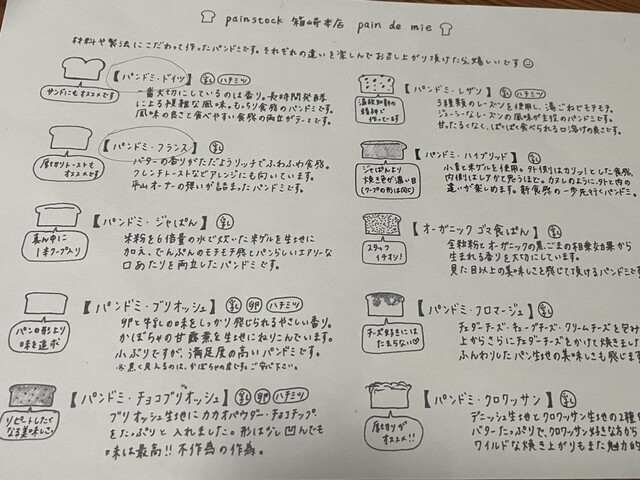 painstock 箱崎本店 pain de mie
材料や製法にこだわって作ったパンドミです。それぞれの違いを楽しんでお召し上がり頂けたら嬉しいです
【パンドミ・ドイツ】 乳 ハチミツ
サンドにもオススメです
一番大切にしているのは香り。長時間発酵
による複雑な風味。もっちり食感のパンドミです。
風味の良さと食べやすい食感の両立がテーマです。
【パンドミ・フランス】 乳
厚切りトーストも
オススメです
バターの香りがただようリッチでふわふわ食感。
フレンチトーストなどアレンジにも向いています。
平山オーナーの想いが詰まったパンドミです。
【パンドミ・ジャぱん】 乳
真ん中に
1本クープ入り
米粉を6倍量の水で炊いた米ゲルを生地に
加え、でんぷんのモチモチ感とパンらしいエアリーな
口あたりを両立したパンドミです。
【パンドミ・ブリオッシュ】 乳 卵 ハチミツ
パンの形より
味を追求
卵と牛乳の味をしっかり感じられるやさしい香り。
かぼちゃの甘露煮を生地にねりこんでいます。
小ぶりですが、満足度の高いパンドミです。
※黒く見えるのは、かぼちゃの皮です。ご安心下さい。
【パンドミ・チョコブリオッシュ】 乳 卵 ハチミツ
リピートしたく
なる美味しさ
ブリオッシュ生地にカカオパウダー・チョコチップ
をたっぷりと入れました。形は少し凹んでも
味は最高!! 不作為の作為。
【パンドミ・レザン】 乳 ハチミツ
温故知新の
精神で
作ってます
3種類のレーズンを使用し、湯ごねでモチモチ。
ジューシーなレーズンの風味が主役のパンドミです。
甘ったるくなく、ぱくぱく食べられる口溶けの良さです。
【パンドミ・ハイブリッド】 乳
ジャぱんより
焼き色が濃い目
(クープの形は同じ)
小麦と米ゲルを使用。外側はカリッとした食感、
内側はレアかと思うほど。カヌレのように、外と内
の違いが楽しめます。新食感の一歩先行くパンドミ。
【オーガニック ゴマ食ぱん】 乳
スタッフ
イチオシ!
全粒粉とオーガニックの黒ごまの相乗効果から
生まれる香りを大切にしています。
見た目以上の美味しさを感じて頂けるパンドミです
【パンドミ・フロマージュ】 乳
チーズ好きには
たまらない♡
チェダーチーズ・キューブチーズ・クリームチーズを包み
上からさらにチェダーチーズをかけて焼きました
ふんわりしたパン生地の美味しさも感じます
【パンドミ・クロワッサン】 乳
厚切りが
オススメ!!
デニッシュ生地とクロワッサン生地の2種
バターたっぷりで、クロワッサン好きな方から
ワイルドな焼き上がりもまた魅力的